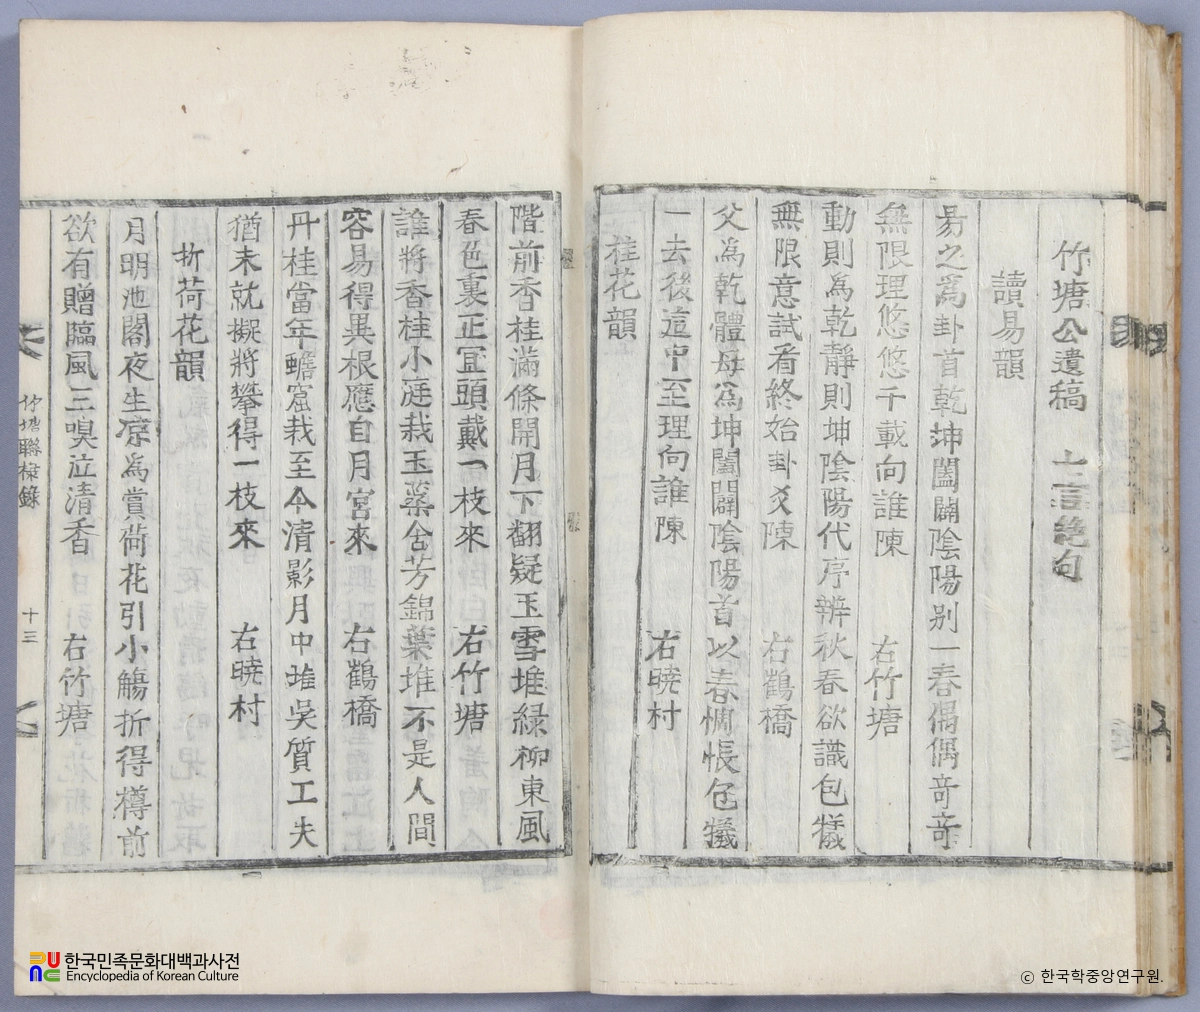 竹塘公遺稿 七言絶句
讀易韻
易之爲卦首乾坤闔闢陰陽別一春偶偶奇奇
無限理悠悠千載向誰陳 右竹塘
動則爲乾靜則坤陰陽代序辨秋春欲識包犧
無限意試看終始卦爻陳 右鶴橋
父爲乾體母爲坤闔闢陰陽首以春惆悵包犧
一去後這中至理向誰陳 右曉村
桂花韻
階前香桂滿條開月下翻疑玉雪堆綠柳東風
春色裏正宜頭戴一枝來 右竹塘
誰將香桂小庭栽玉蘂含芳錦葉堆不是人間
容易得異根應自月宮來 右鶴橋
丹桂當年蟾窟栽至今清影月中堆吳質工夫
猶未就擬將攀得一枝來 右曉村
折荷花韻
月明池閣夜生凉爲賞荷花引小觴折得樽前
欲有贈臨風三嗅泣清香 右竹塘
竹塘聯棣錄 十三
한국민족문화대백과사전
Encyclopedia of Korean Culture
ⓒ 한국학중앙연구원.